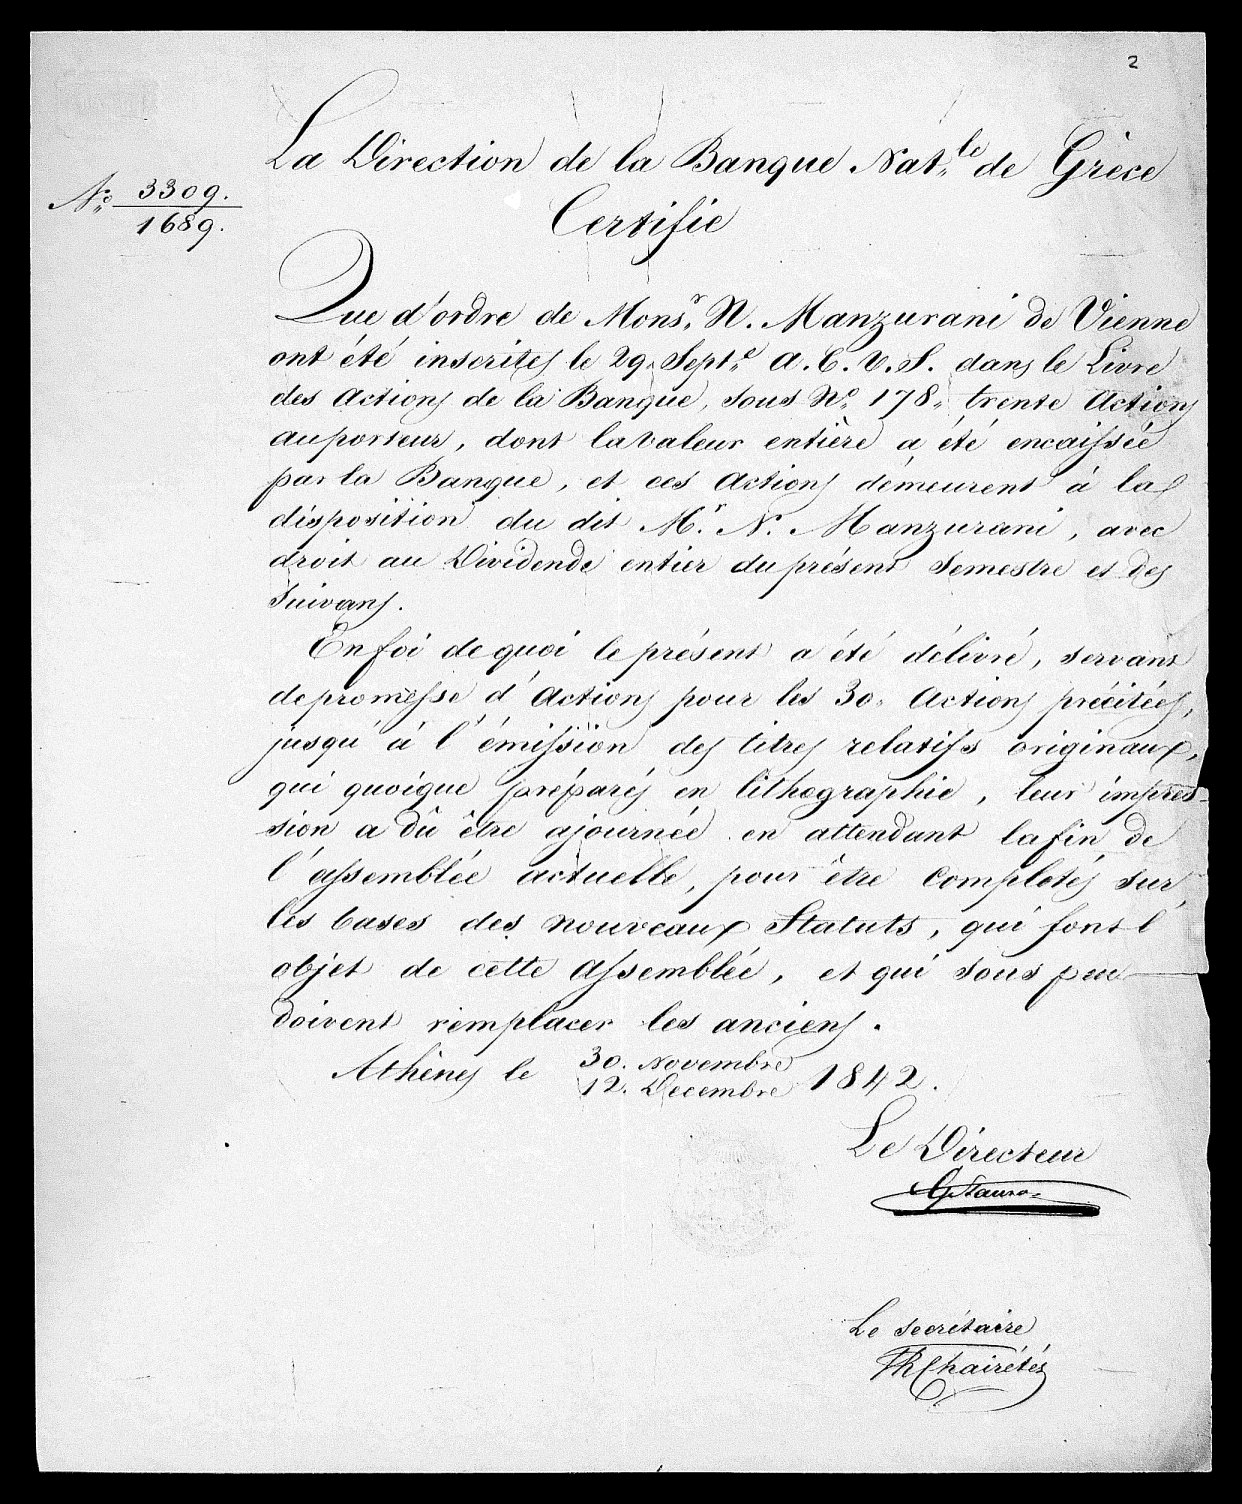 2
La Direction de la Banque Nat.le de Grèce
No. 3309.
1689.
Certifie
Que d'ordre de Monsr. N. Manzurani de Vienne
ont été inscrites le 29. Septe. a. C. V. S. dans le Livre
des Actions de la Banque, sous No. 178. trente Actions
au porteur, dont la valeur entière a été encaissée
par la Banque, et ces Actions démeurent à la
disposition du dit Mr. N. Manzurani, avec
droit au Dividende entier du présent Semestre et des
Suivans.
En foi de quoi le présent a été délivré, servant
de promesse d'Actions pour les 30. Actions précitées,
jusqu'à l'émission des titres relatifs originaux,
qui quoique préparés en lithographie, leur impres-
sion a dû être ajournée en attendant la fin de
l'assemblée actuelle, pour être complétés sur
les bases des nouveaux Statuts, qui font l'
objet de cette Assemblée, et qui sous peu
doivent remplacer les anciens.
Athènes le 30. Novembre
12. Decembre 1842.
Le Directeur
G Stauro
Le secrétaire
Chairétés